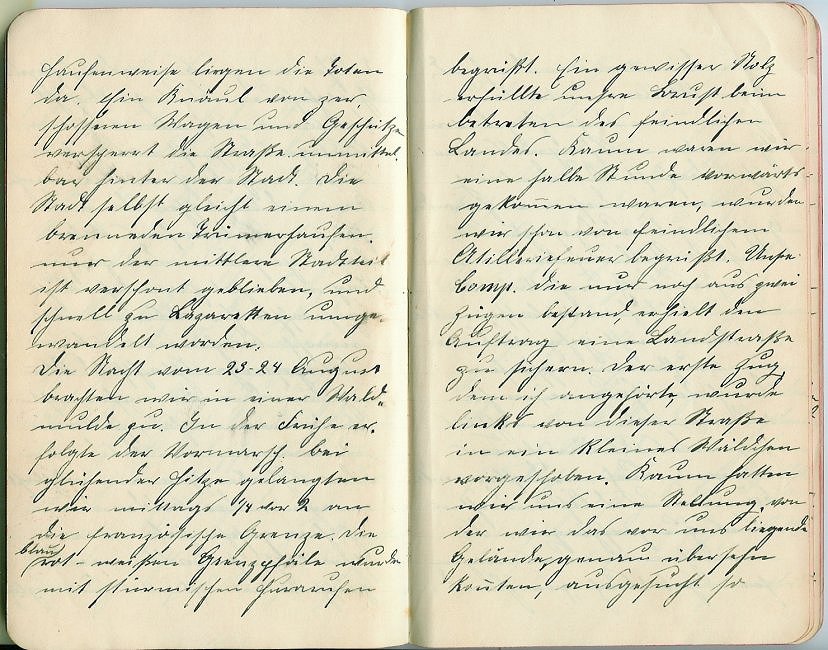 haufenweise liegen die Toten
da. Ein Knäul von zer,
schossenen Wagen und Geschütze
versperrt die Straße unmittel,
bar hinter der Stadt. Die
Stadt selbst gleicht einem
brenneden Trümerhaufen.
nur der mittlere Stadtteil
ist verschont geblieben, und
schnell zu Lazaretten umge-
wandelt worden.
Die Nacht vom 23-24 August
brachten wir in einer Wald„
mulde zu. In der Frühe er,
folgte der Vormarsch. bei
glühender Hitze gelangten
wir mittags 1/4 vor 2 an
die französische Grenze. Die
blau
rot - weißen Grenzpfäile wurden
mit stürmischen Hurarufen
begrüßt. Ein gewisser Stolz
erfüllte unsre Brust beim
betreten des feindlichen
Landes. Kaum waren wir
eine halbe Stunde vorwärts-
gekom̄en waren, wurden
wir schon von feindlichem
Atilleriefeuer begrüßt. Unsre
Comp. die nur noch aus zwei
Zügen bestand, erhielt den
Auftrag eine Landstraße
zu sichern. Der erste Zug,
dem ich angehörte, wurde
links von dieser Straße
in ein kleines Wäldchen
vorgeschoben. Kaum hatten
wir uns eine Stellung, von
der wir das vor uns liegende
Gelände, genau übersehn
kon̄ten, ausgesucht so